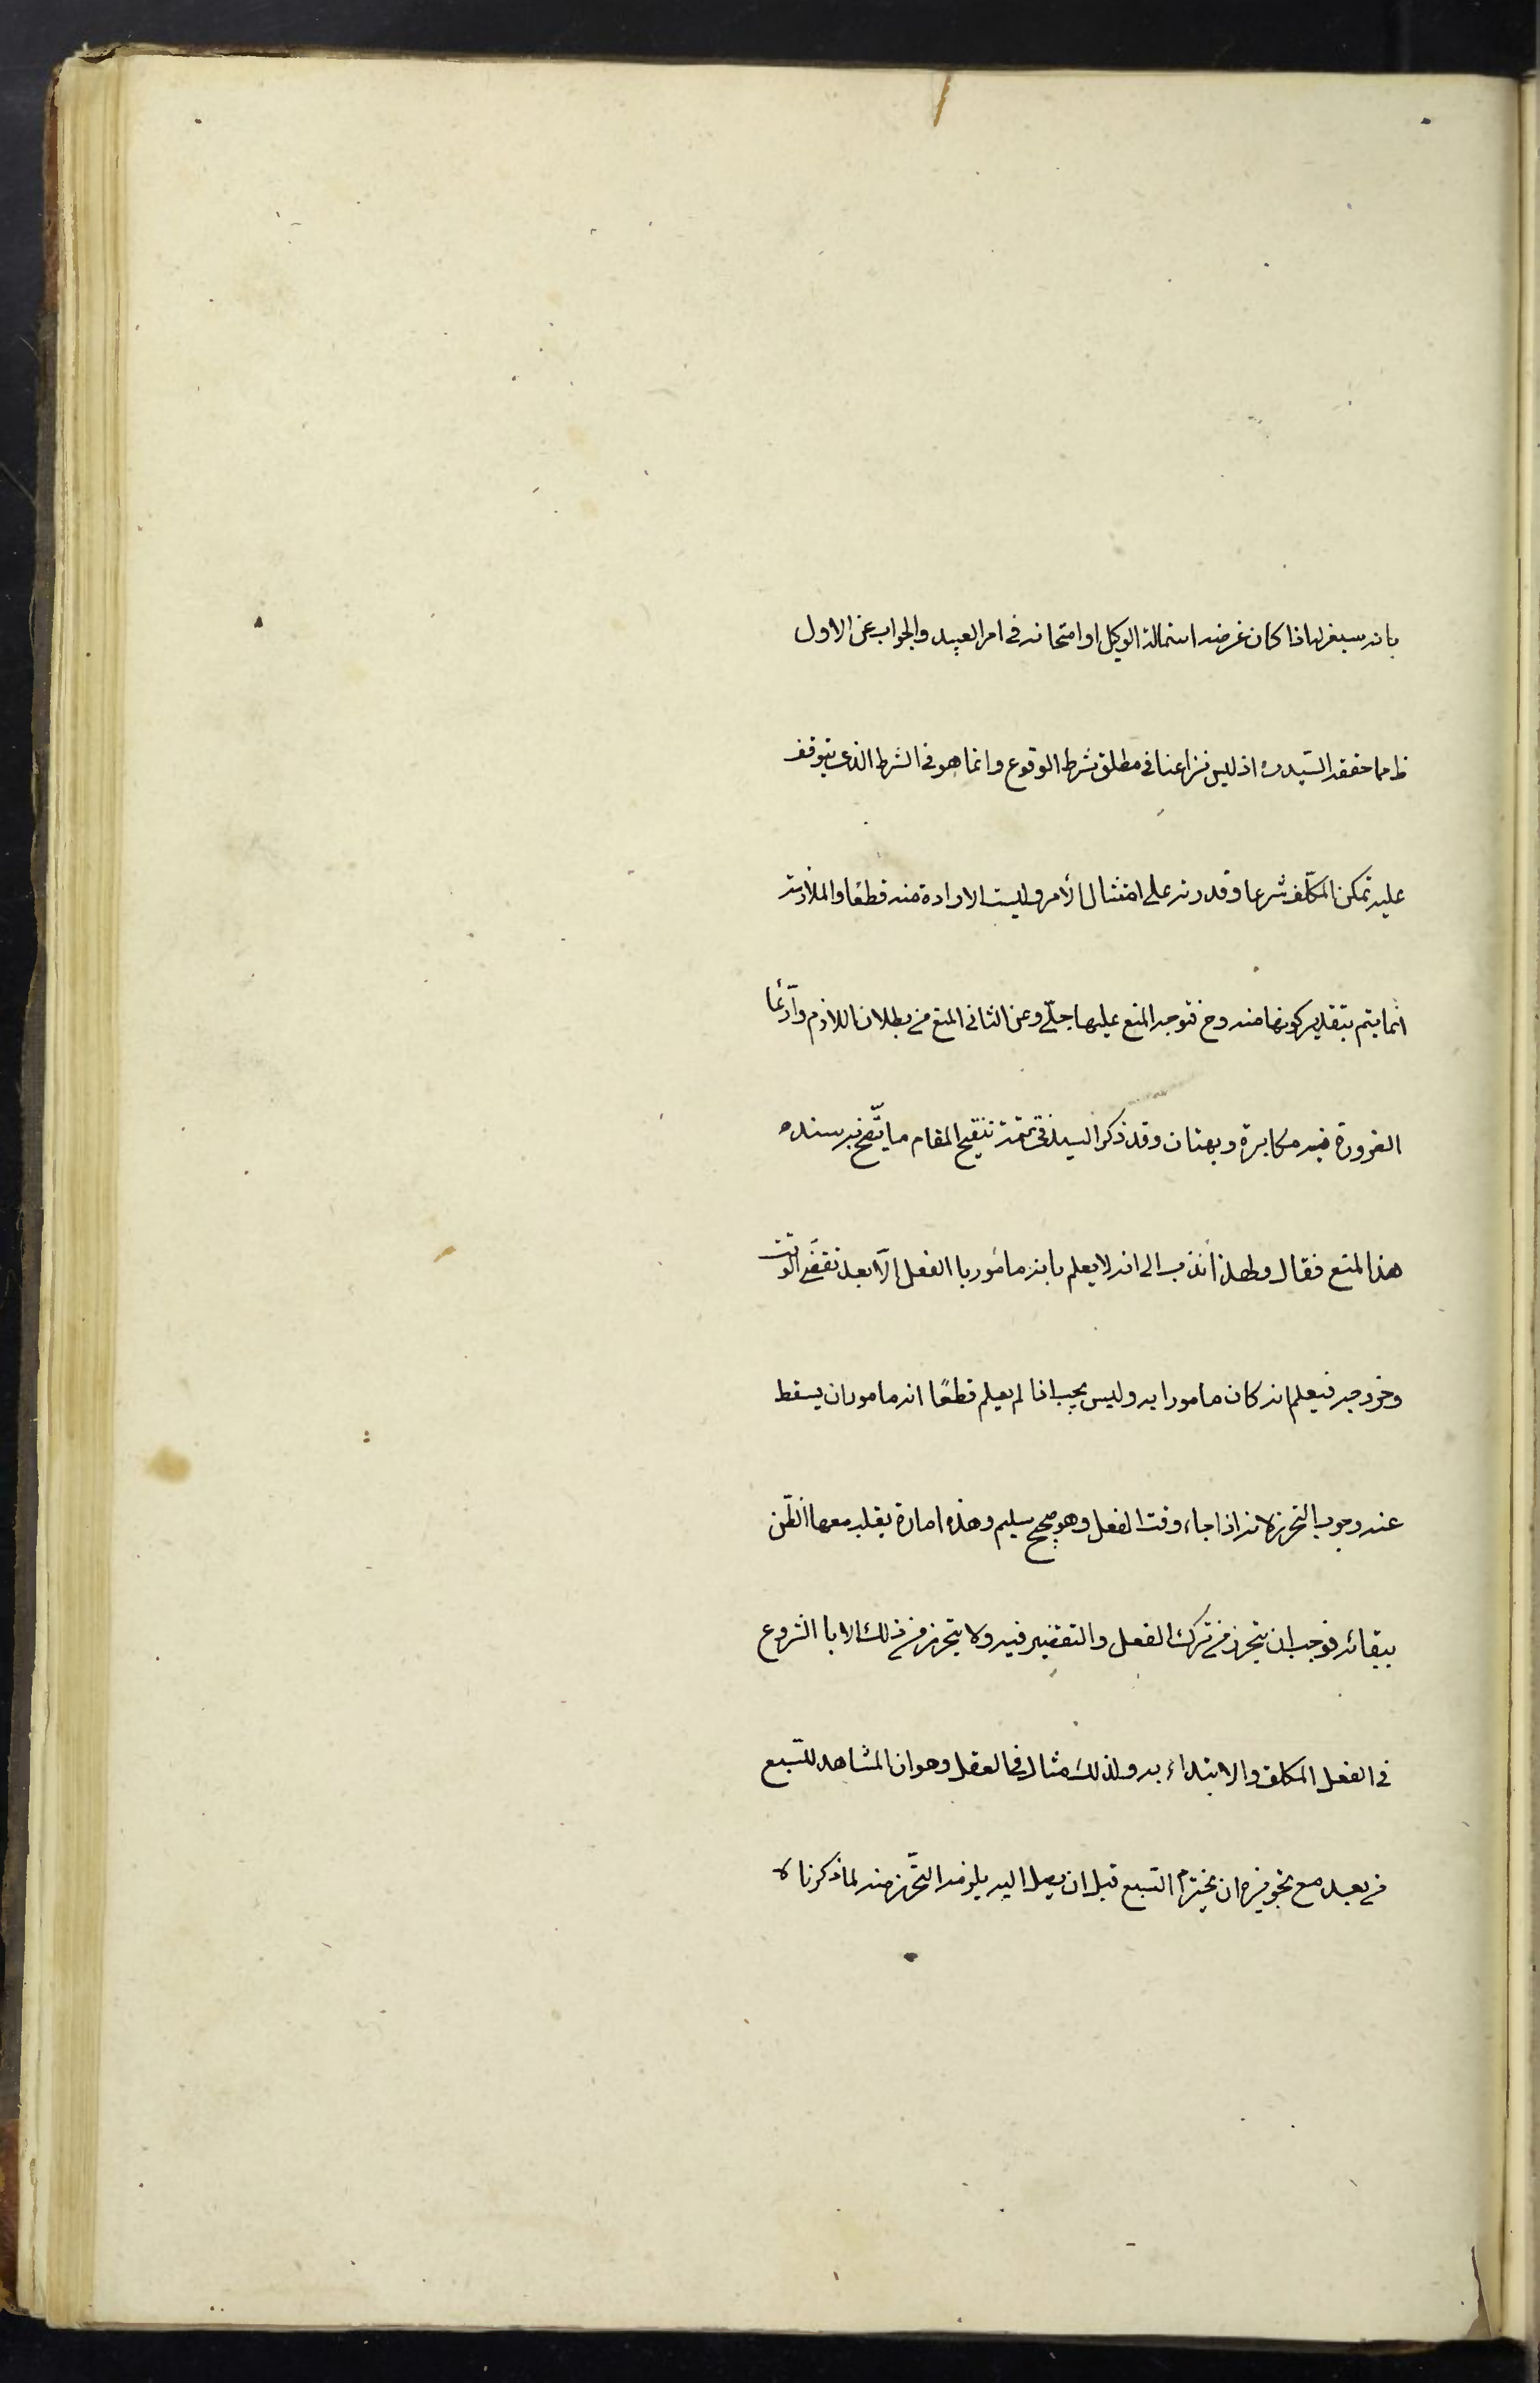 بانه سيعزله اذا كان غرضه استمالة الوكيل او امتحانه فی امر العبيد والجواب عن الاول
ظ مما حققه السّيد ره اذ ليس نزاعنا فی مطلق شرط الوقوع وانما هو فی الشرط الذی يتوقف
عليه تمكن المكلّف شرعا وقدرته علی امتثال الأمر وليست الارادة منه قطعًا والملازمة
انّما يتم بتقدير كونها منه وح فتوجه المنع عليها جلّی وعن الثانی المنع من بطلان اللازم وادّعا
الضرورة فيه مكابرة وبهتان وقد ذكر السيد فی تتمة تنقيح المقام ما يتّضح به سند
هذا المنع فقال ولهذا نذهب الی انه لا يعلم بانه مأمور با الفعل الّا بعد تقضّی الوقت
وخروجه فيعلم انه كان مامورا به وليس يجب اذا لم يعلم قطعًا انه مامور ان يسقط
عنه وجوب التحرز لانه اذا جاء وقت الفعل وهو صحيح سليم وهذه امارة يغلب معها الظّن
ببقائه فوجب ان يتحرز من ترك الفعل والتقصير فيه ولا يتحرز من ذلك الا با الشروع
فی الفعل المكلف والابتداء به ولذلك مثال فی العقل وهو ان المشاهد للسّبع
من بعيد مع تجويزه ان يخترم السّبع قبل ان يصل اليه يلزمه التّحرّز منه لما ذكرنا لا